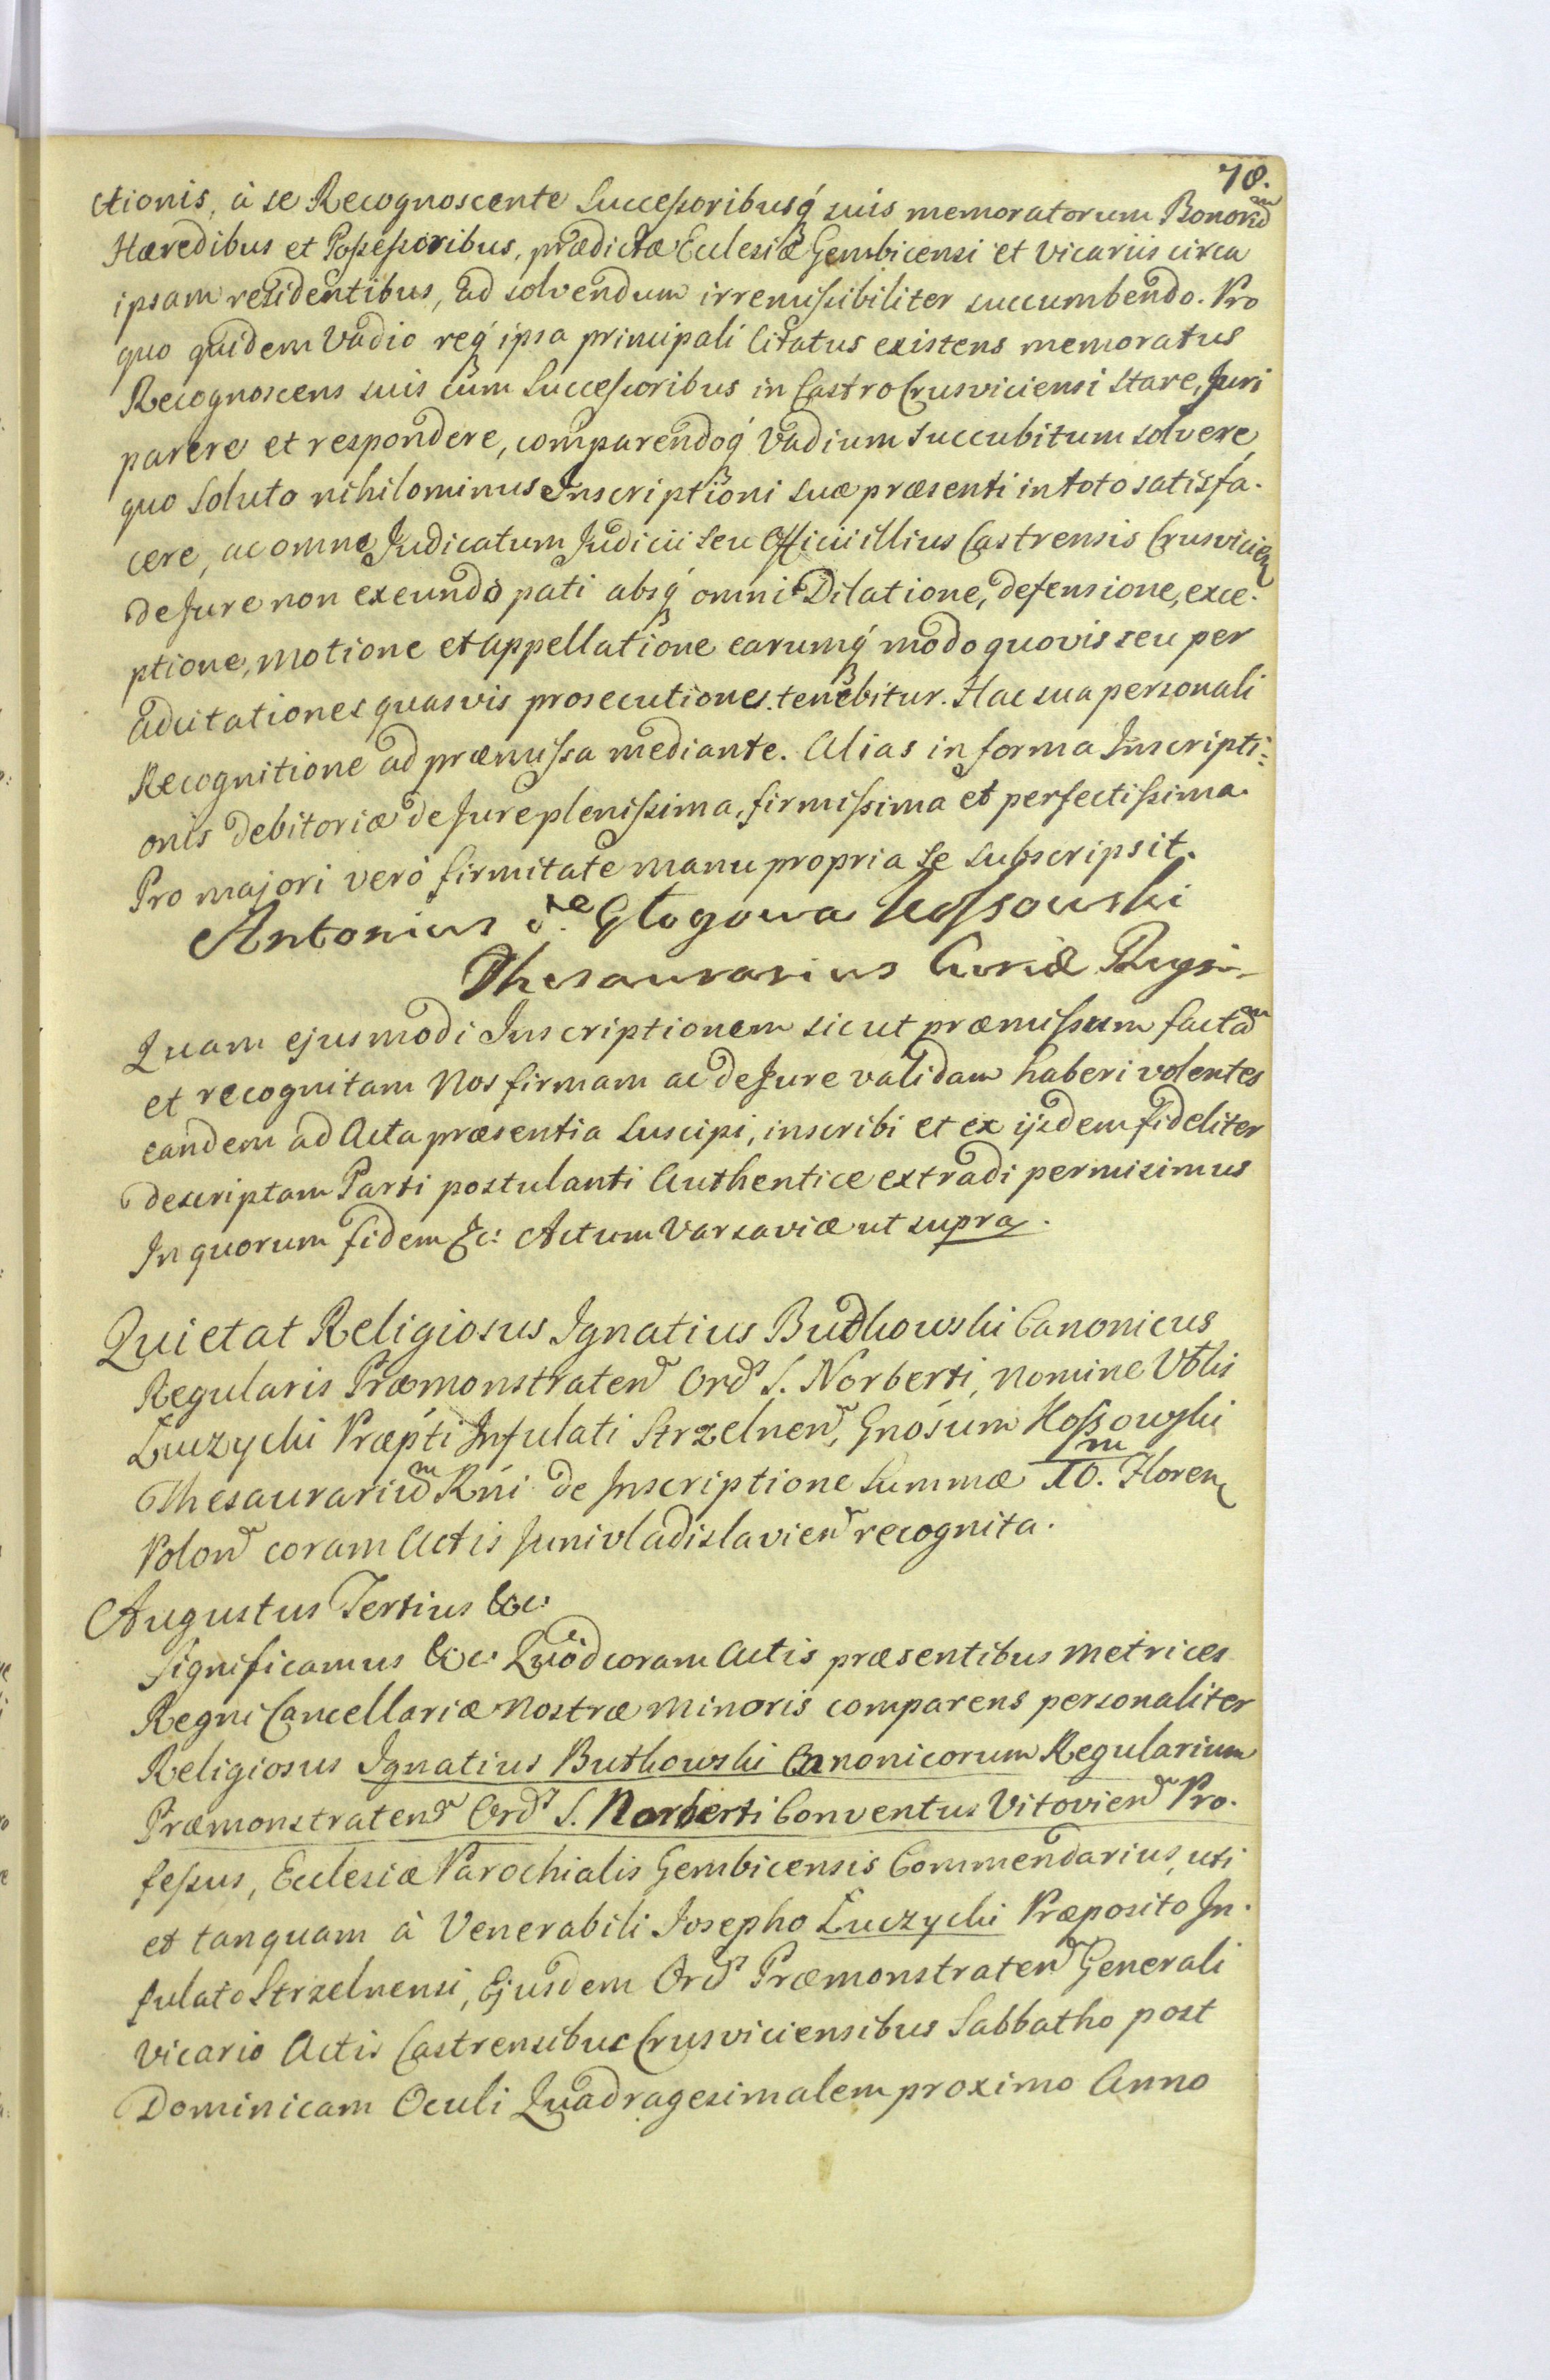 78.
ctionis, à se Recognoscente Successoribusq́ suis memoratorum Bonorũ
Hæredibus et Possessoribus, prædictæ Ecclesiæ Gembicensi et Vicariis circa
ipsam residentibus, ad solvendum irremissibiliter succumbendo. Pro
quo quidem Vadio req́ ipsa principali Citatus existens memoratus
Recognoscens suis cum Successoribus in Castro Crusviciensi stare, Juri
parere et respondere, comparendoq́ Vadium succubitum solvere,
quo soluto nihilominus Inscriptioni suæ præsenti in toto satisfa-
cere, ac omne Judicatum Judicii seu Officii illius Castrensis Crusvicien
de Jure non exeundo pati absq́ omni Dilatione, defensione, exce-
ptione, motione et appellatione earumq́ modo quovis seu per
adcitationes quasvis prosecutiones tenebitur. Hac sua personali
Recognitione ad præmissa mediante. Alias in forma Inscripti=
onis debitoriæ de Jure plenissima, firmissima et perfectissima.
Pro majori verò firmitate manu propria se subscripsit.
Antonius de Głogowa Kossowski
Thesaurarius Curiæ Regni
Quam ejusmodi Inscriptionem sicut præmissum factã
et recognitam Nos firmam ac de Jure validam haberi volentes
eandem ad Acta præsentia suscipi, inscribi et ex ijsdem fideliter
descriptam Parti postulanti Authentice extradi permisimus
In quorum fidem &c: Actum Varsaviæ ut supra.
Quietat Religiosus Ignatius Budkowski Canonicus
Regularis Præmonstraten Ord S. Norberti, nomine Vblis
Łuczycki Præpti Infulati Strzelnen, Gnósum Kossowski
Thesaurariũ Rńi de Inscriptione Summæ 10.m Floren
Polon coram Actis Junivladislavien recognita.
Augustus Tertius &c:
Significamus &c: Quòd coram Actis præsentibus Metrices
Regni Cancellariæ Nostræ Minoris comparens personaliter
Religiosus Ignatius Butkowski Canonicorum Regularium
Præmonstraten Ord S. Norberti Conventus Vitovien Pro-
fessus, Ecclesiæ Parochialis Gembicensis Commendarius, uti
et tanquam à Venerabili Josepho Łuczycki Præposito In-
fulato Strzelnensi, Ejusdem Ord Præmonstraten Generali
Vicario Actis Castrensibus Crusviciensibus Sabbatho post
Dominicam Oculi Quadragesimalem proximo Anno